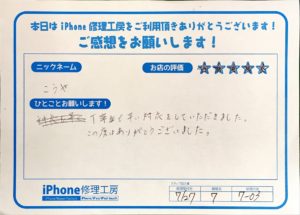 本日は iPhone 修理工房をご利用頂きありがとうございます!
ご感想をお願いします!
ニックネーム
お店の評価
こうや
ひとことお願いします!
丁寧な対応をしていただきました。
この度はありがとうございました。
iPhone修理工房
7/27
7
7-03